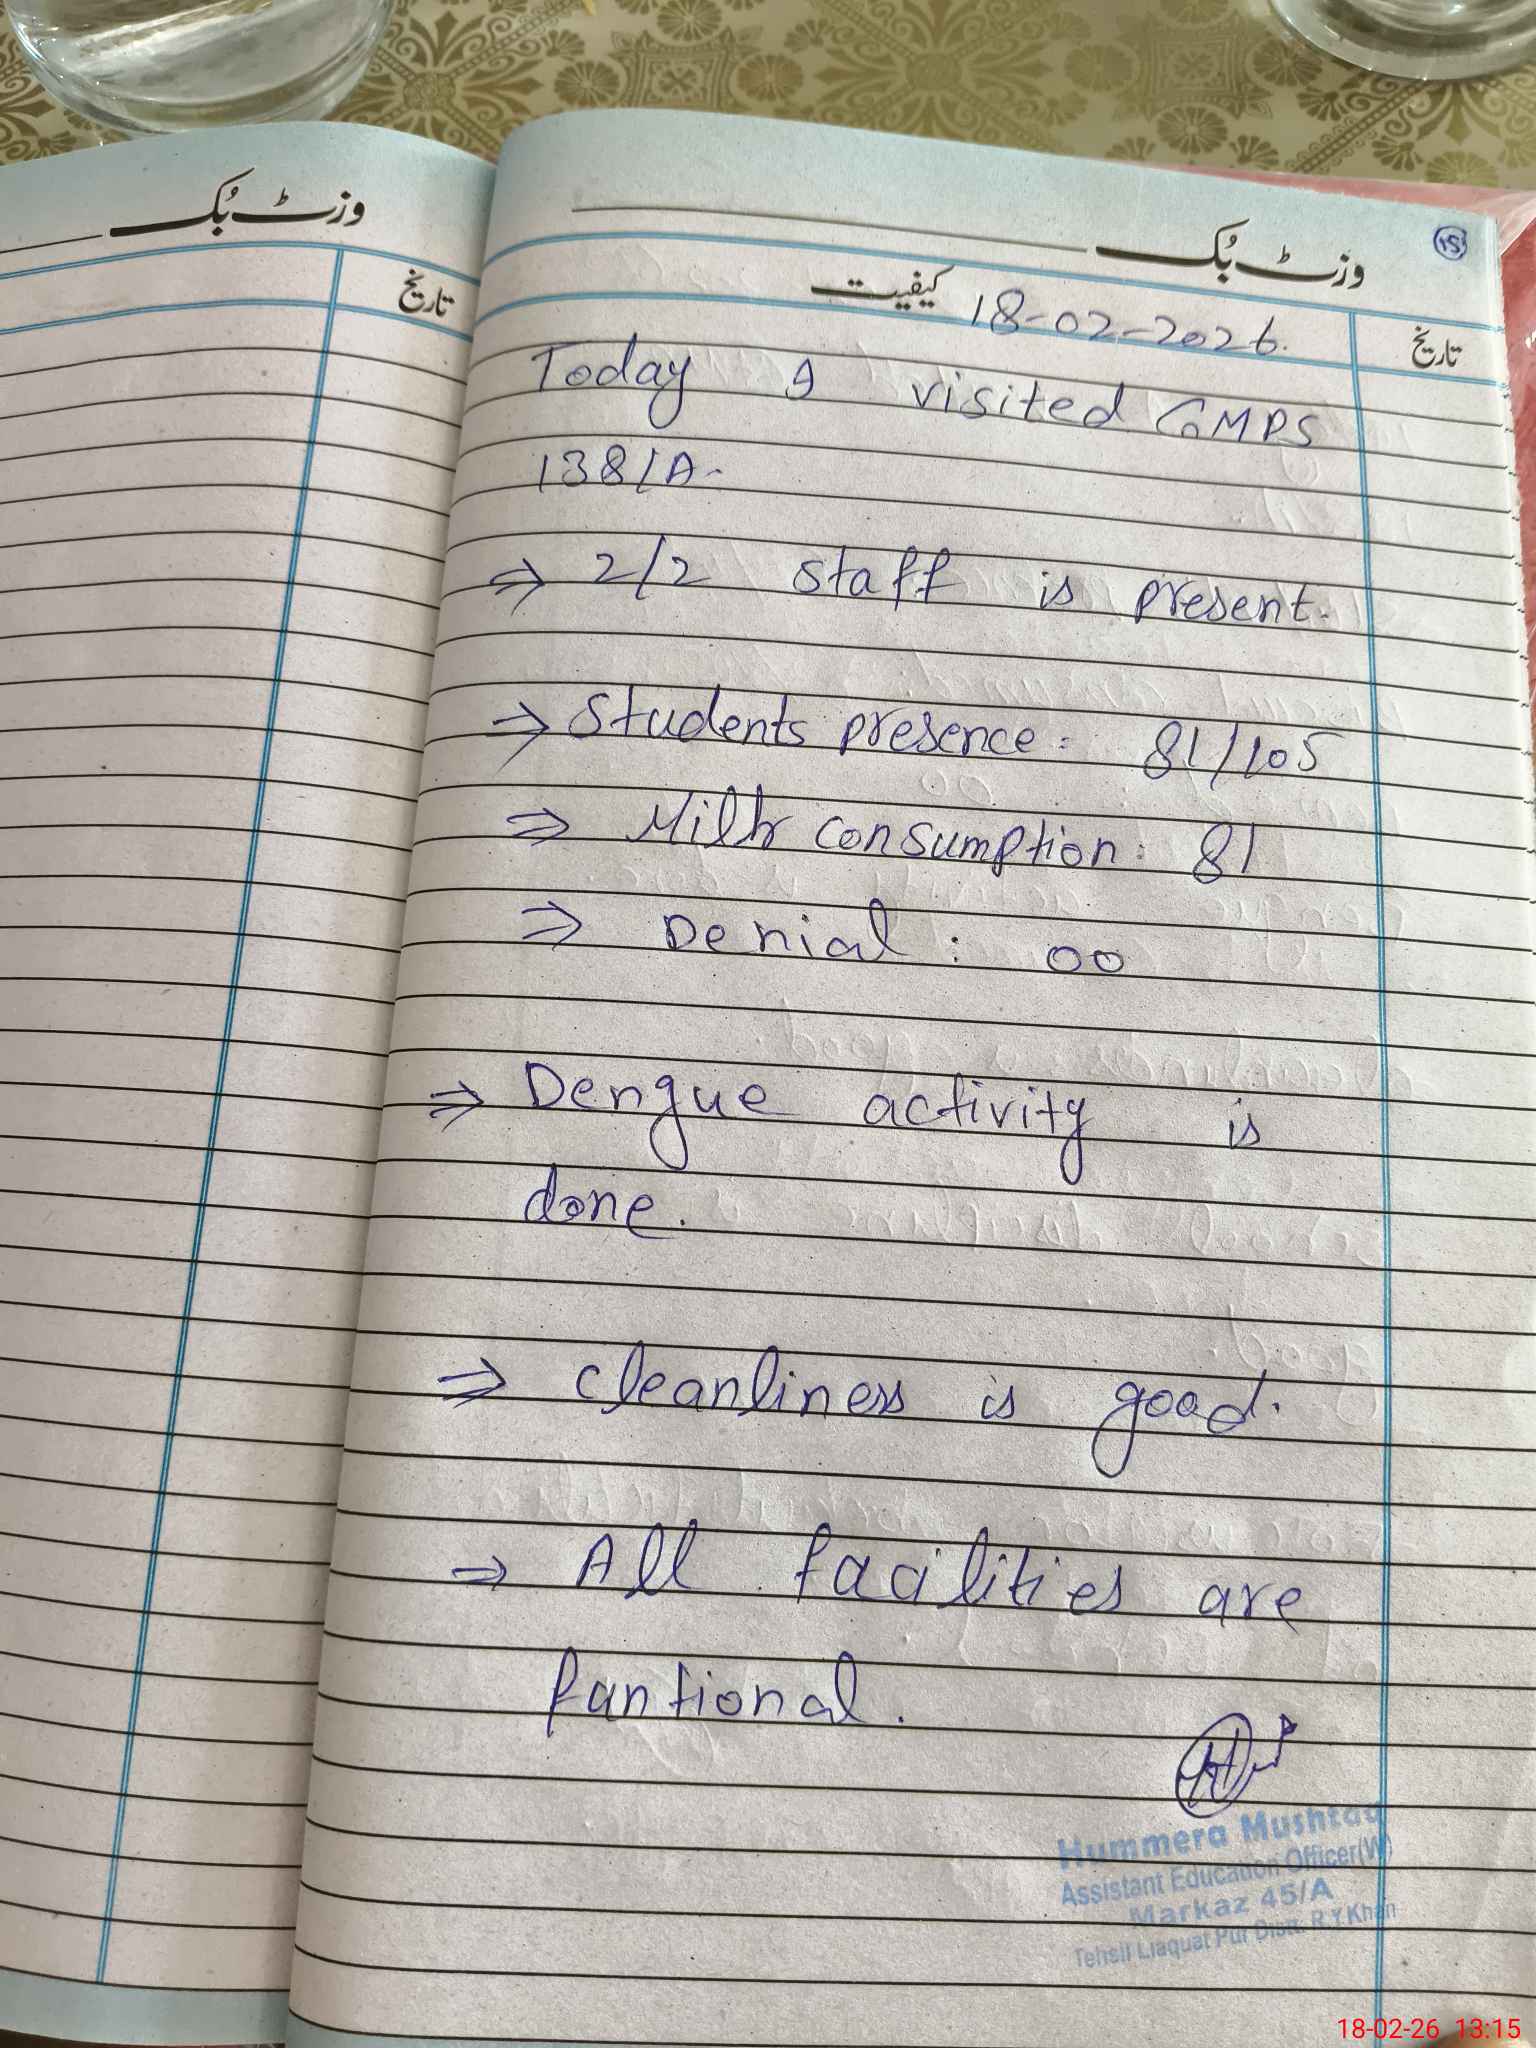 وزٹ بُک
تاریخ
وزٹ بُک
15
کیفیت
تاریخ
18-02-2026.
Today I visited GMPS
138/A-
⇒ 2/2 staff is present.
⇒ Students presence: 81/105
⇒ Milk consumption: 81
⇒ Denial: 00
⇒ Dengue activity is
done.
⇒ cleanliness is good.
⇒ All facilities are
funtional.
Hummera Mushtaq
Assistant Education Officer(W)
Markaz 45/A
Tehsil Liaquat Pur Distt. R.Y.Khan
18-02-26 13:15